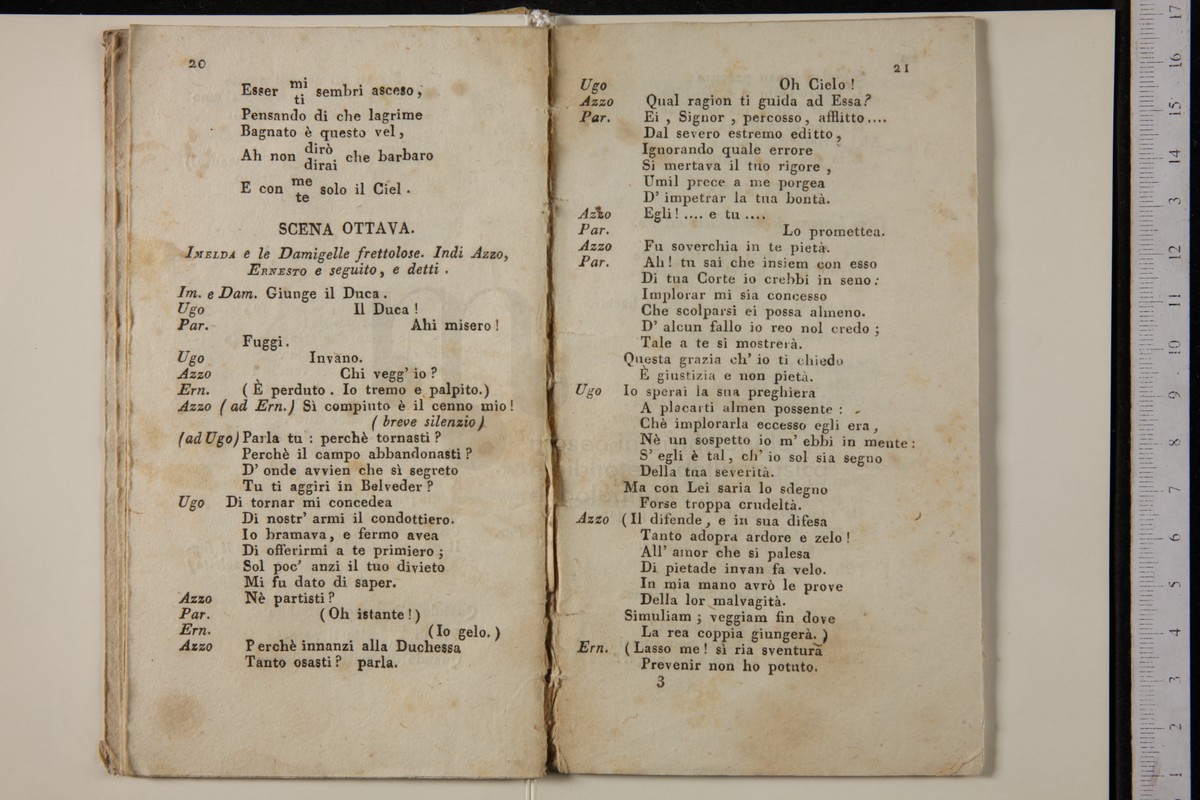 20
Esser mi sembri asceso,
ti
Pensando di che lagrime
Bagnato è questo vel,
Ah non dirò che barbaro
dirai
E con me solo il Ciel.
te
SCENA OTTAVA.
IMELDA e le Damigelle frettolose. Indi Azzo,
ERNESTO e seguito, e detti.
Im. e Dam. Giunge il Duca.
Ugo Il Duca!
Par. Ahi misero!
Fuggi.
Ugo Invano.
Azzo Chi vegg' io?
Ern. (È perduto. Io tremo e palpito.)
Azzo (ad Ern.) Sì compiuto è il cenno mio!
(breve silenzio)
(ad Ugo) Parla tu: perchè tornasti?
Perchè il campo abbandonasti?
D' onde avvien che sì segreto
Tu ti aggiri in Belveder?
Ugo Di tornar mi concedea
Di nostr' armi il condottiero.
Io bramava, e fermo avea
Di offerirmi a te primiero;
Sol poc' anzi il tuo divieto
Mi fu dato di saper.
Azzo Nè partisti?
Par. (Oh istante!)
Ern. (Io gelo.)
Azzo Perchè innanzi alla Duchessa
Tanto osasti? parla.
21
Ugo Oh Cielo!
Azzo Qual ragion ti guida ad Essa?
Par. Ei, Signor, percosso, afflitto....
Dal severo estremo editto,
Ignorando quale errore
Si mertava il tuo rigore,
Umil prece a me porgea
D' impetrar la tua bontà.
Azzo Egli!.... e tu....
Par. Lo promettea.
Azzo Fu soverchia in te pietà.
Par. Ah! tu sai che insiem con esso
Di tua Corte io crebbi in seno:
Implorar mi sia concesso
Che scolparsi ei possa almeno.
D' alcun fallo io reo nol credo;
Tale a te si mostrerà.
Questa grazia ch' io ti chiedo
È giustizia e non pietà.
Ugo Io sperai la sua preghiera
A placarti almen possente:
Chè implorarla eccesso egli era,
Nè un sospetto io m' ebbi in mente:
S' egli è tal, ch' io sol sia segno
Della tua severità.
Ma con Lei saria lo sdegno
Forse troppa crudeltà.
Azzo (Il difende, e in sua difesa
Tanto adopra ardore e zelo!
All' amor che si palesa
Di pietade invan fa velo.
In mia mano avrò le prove
Della lor malvagità.
Simuliam; veggiam fin dove
La rea coppia giungerà.)
Ern. (Lasso me! sì ria sventura
Prevenir non ho potuto.
3
17
16
15
14
13
12
11
10
9
8
7
6
5
4
3
2
1